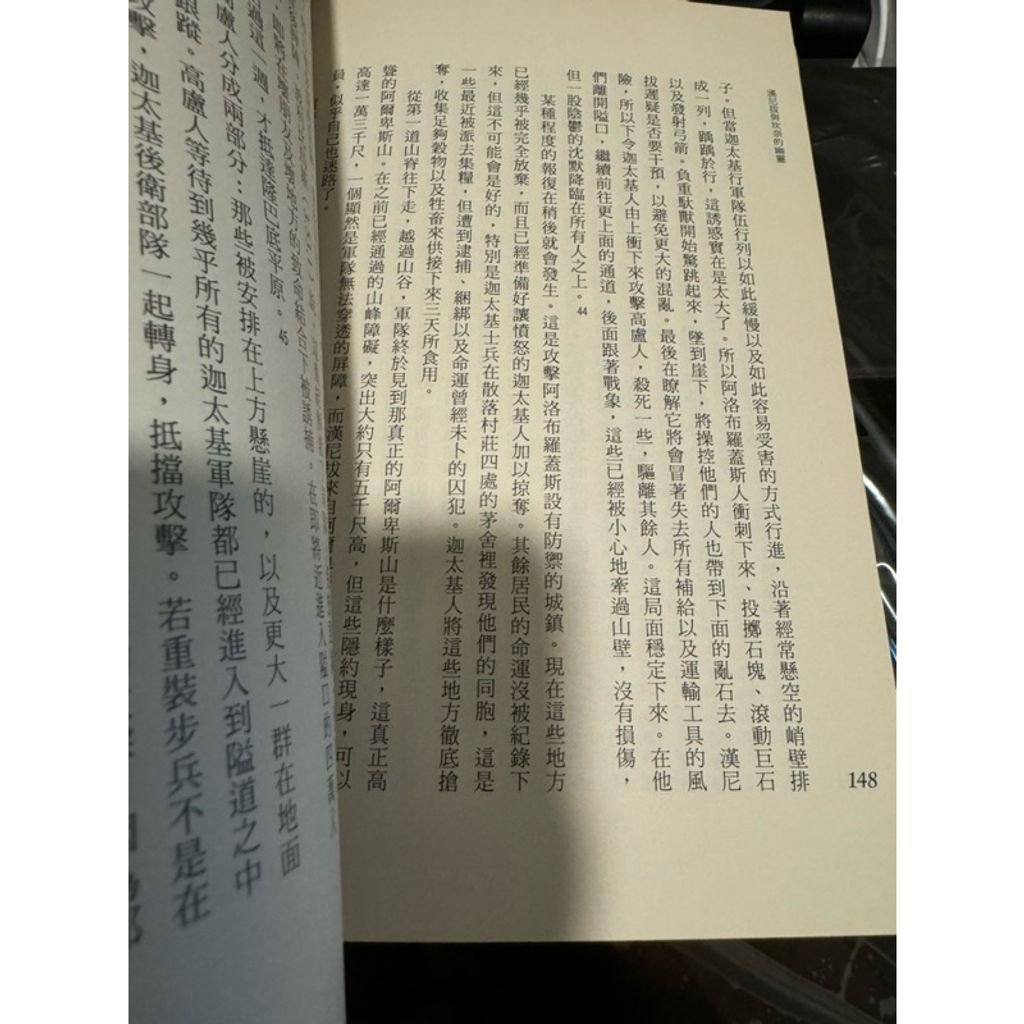 漢尼拔與坎奈的幽靈
子。但當迦太基行軍隊伍行列以如此緩慢以及如此容易受害的方式行進，沿著經常懸空的峭壁排
成一列，踽踽於行，這誘惑實在是太大了。所以阿洛布羅蓋斯人衝刺下來、投擲石塊、滾動巨石
以及發射弓箭。負重馱獸開始驚跳起來，墜到崖下，將操控他們的人也帶到下面的亂石去。漢尼
拔遲疑是否要干預，以避免更大的混亂。最後在瞭解它將會冒著失去所有補給以及運輸工具的風
險，所以下令迦太基人由上衝下來攻擊高盧人，殺死一些，驅離其餘人。這局面穩定下來。在他
們離開隘口，繼續前往更上面的通道，後面跟著戰象，這些已經被小心地牽過山壁，沒有損傷，
但一股陰鬱的沈默降臨在所有人之上。44
某種程度的報復在稍後就會發生。這是攻擊阿洛布羅蓋斯設有防禦的城鎮。現在這些地方
已經幾乎被完全放棄，而且已經準備好讓憤怒的迦太基人加以掠奪。其餘居民的命運沒被紀錄下
來，但這不可能會是好的，特別是迦太基士兵在散落村莊四處的茅舍裡發現他們的同胞，這是
一些最近被派去集糧，但遭到逮捕、綑綁以及命運曾經未卜的囚犯。迦太基人將這些地方徹底搶
奪，收集足夠穀物以及牲畜來供接下來三天所食用。
從第一道山脊往下走，越過山谷，軍隊終於見到那真正的阿爾卑斯山是什麼樣子，這真正高
聳的阿爾卑斯山。在之前已經通過的山峰障礙，突出大約只有五千尺高，但這些隱約現身，可以
高達一萬三千尺，一個顯然是軍隊無法穿透的屏障，而漢尼拔來自阿爾
員，似乎自己也迷路了。
148
過這一週，才抵達隆巴底平原。45
盧人分成兩部分：那些被安排在上方懸崖的，以及更大一群在地面
跟蹤。高盧人等待到幾乎所有的迦太基軍隊都已經進入到隘道之中
攻擊，迦太基後衛部隊一起轉身，抵擋攻擊。若重裝步兵不是在